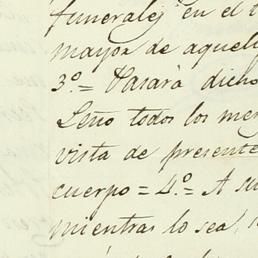 funerales en el
mayor de aquel
3º = Pasará dicho
Leño todos los me
vista de presente
cuerpo = 4º = A su
mientras lo sea,